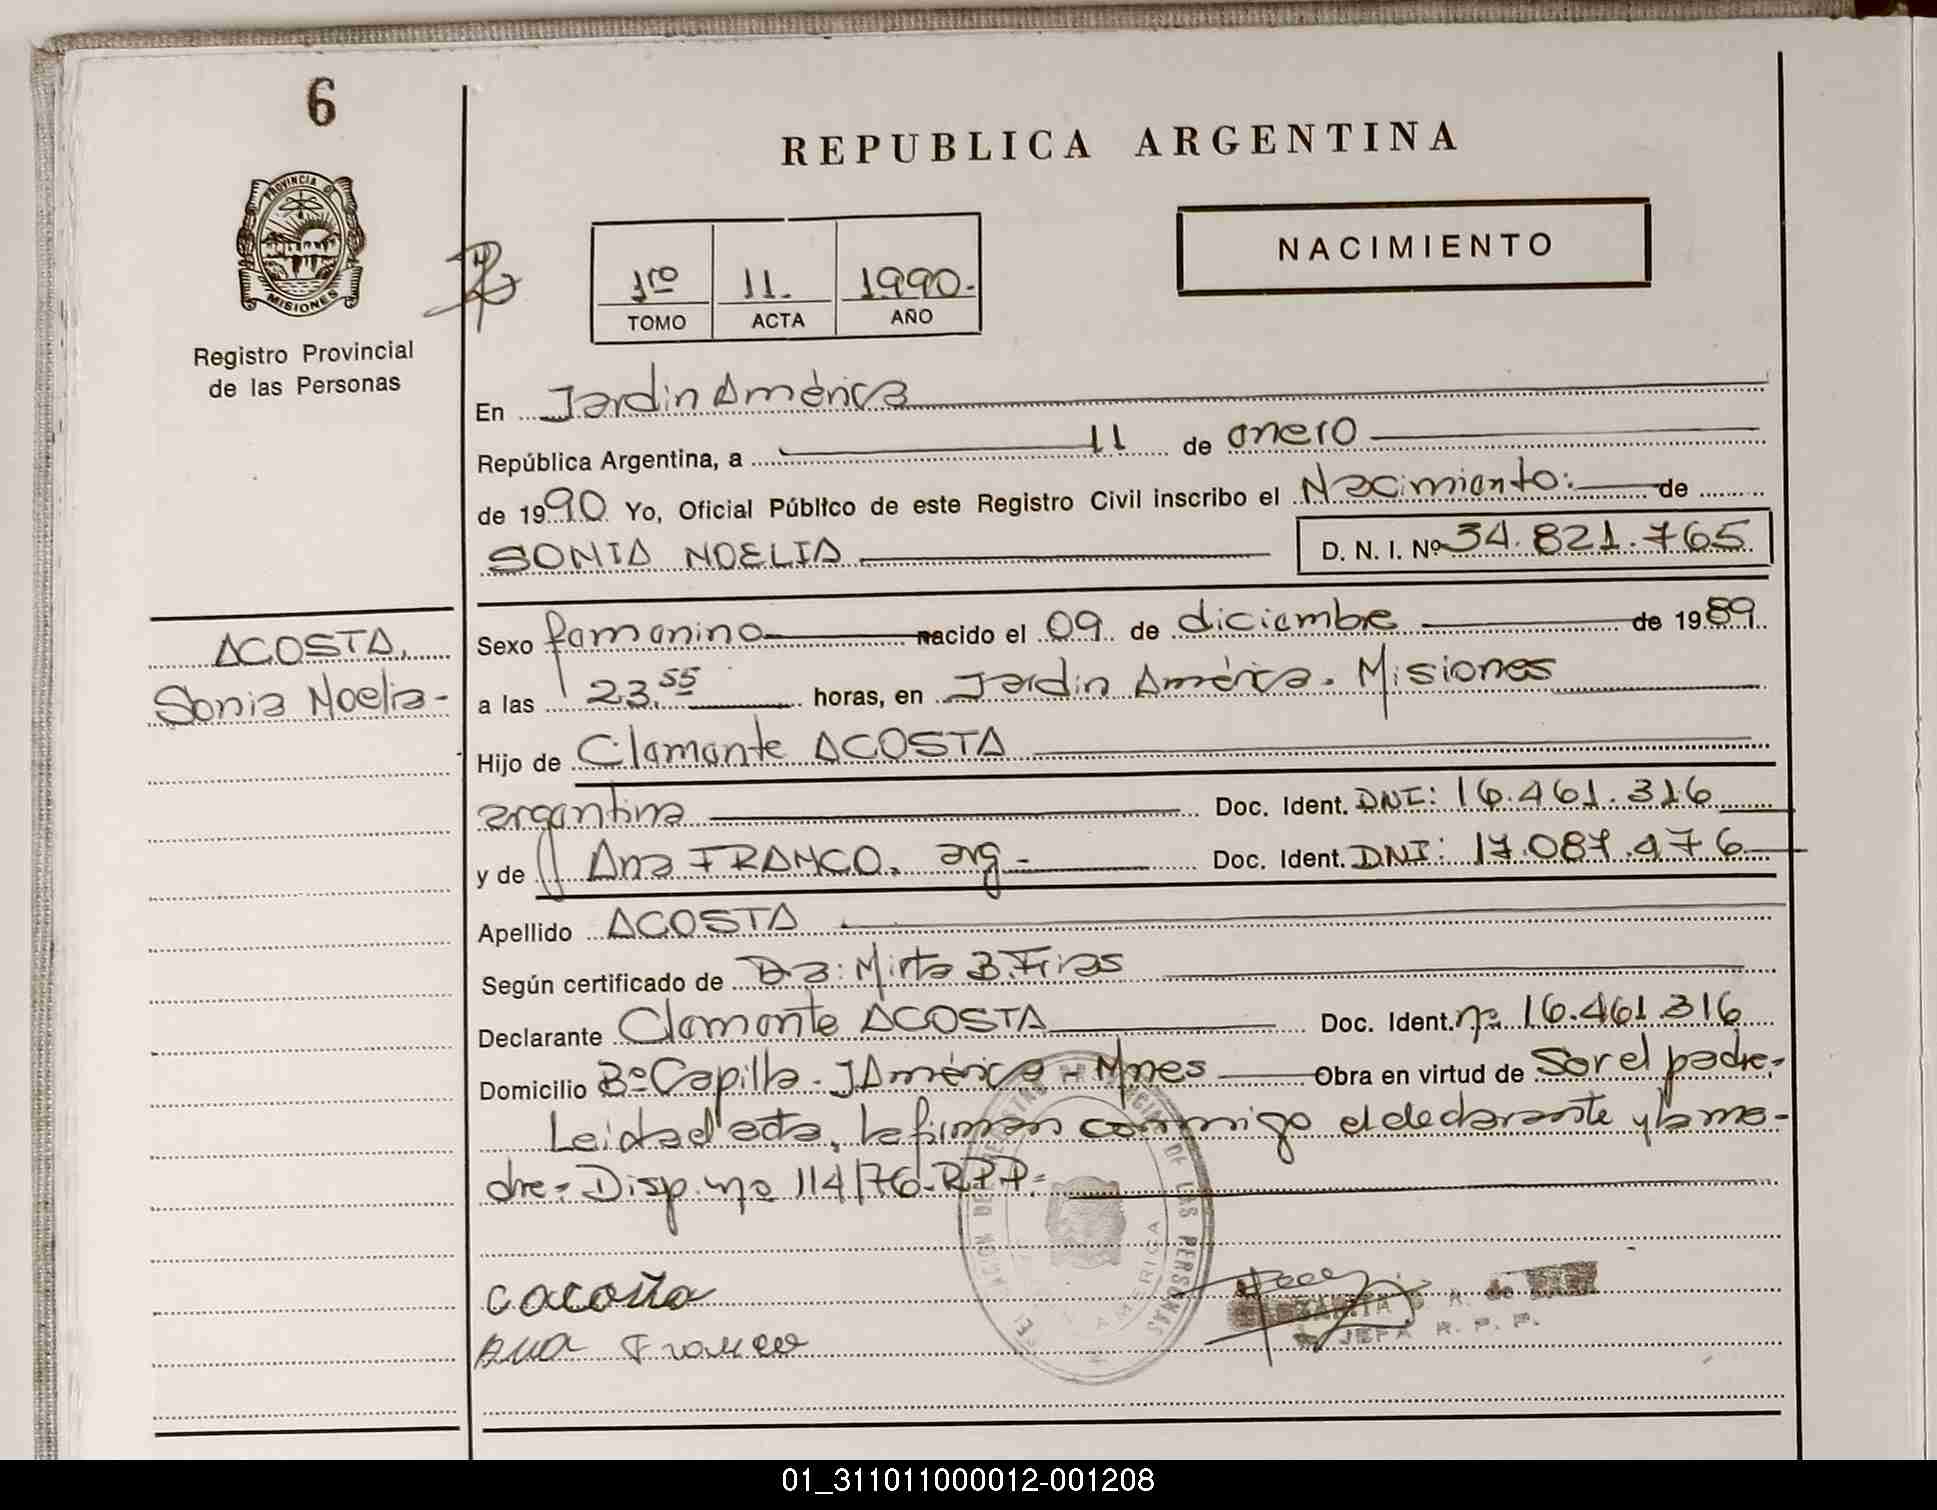 6
REPUBLICA ARGENTINA
PROVINCIA DE
MISIONES
Registro Provincial
de las Personas
1ro 11. 1990.
TOMO ACTA AÑO
NACIMIENTO
En Jardin América
República Argentina, a 11 de enero
de 1990 Yo, Oficial Público de este Registro Civil inscribo el Nacimiento: de
SONIA NOELIA D. N. I. Nº 34.821.765
ACOSTA,
Sonia Noelia-
Sexo femenino nacido el 09 de diciembre de 1989
a las 23.55 horas, en Jardin América. Misiones
Hijo de Clemente ACOSTA
argentina Doc. Ident. DNI: 16.461.316
y de Ana FRANCO. arg- Doc. Ident. DNI: 17.087.476
Apellido ACOSTA
Según certificado de Mirta B. Frias
Declarante Clemente ACOSTA Doc. Ident. nº 16.461.316
Domicilio Bº Capilla- J América - Mnes Obra en virtud de Ser el padre-
Leida el acta, la firman conmigo el declarante y la ma-
dre- Disp. nº 114/76-RPP-
DE LAS PERSONAS
AMERICA
cacosta
Ana Franco
A. de
JEFA R. P. P.
01_311011000012-001208